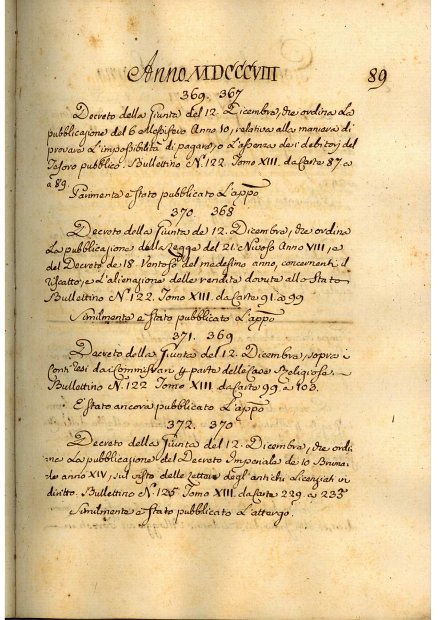 Anno MDCCCVIII
89
369. 367
Decreto della Giunta del 12. Dicembre, che ordina La
pubblicazione del 6 Messifero Anno 10, relativa alla maniera di
provare L'impossibiltà di pagare, o L'assenza dei debitori del
Tesoro pubblico. Bullettino N.° 122. Tomo XIII. da Carte 87 a
a 89.
Parimente è stato pubblicato L'appo
370. 368
Decreto della Giunta de 12. Dicembre, che ordina
La pubblicazione della Legge del 21. Nivoso Anno VIII, e
del Decreto de 18. Ventoso del medesimo anno, concernenti il
Riscatto, e L'alienazione delle rendite dovute allo Stato
Bullettino N.° 122. Tomo XIII. da Carte 91. a 99
Similmente è stato pubblicato L'appo
371. 369
Decreto della Giunta del 12. Dicembre, sopra i
Conti resi dai Commissari p parte delle Case Religiose
Bullettino N. 122 Tomo XIII. da Carte 99. a 103.
È Stato ancora pubblicato L'appo
372. 370
Decreto della Giunta del 12. Dicembre, che ordi
na La pubblicazione del Decreto Imperiale de 10 Bruma
le anno XIV, sul visto delle Lettere degl'antichi Licenziati in
diritto. Bullettino N.° 125 Tomo XIII. da Carte 229. a 233
Similmente è stato pubblicato L'attergo.